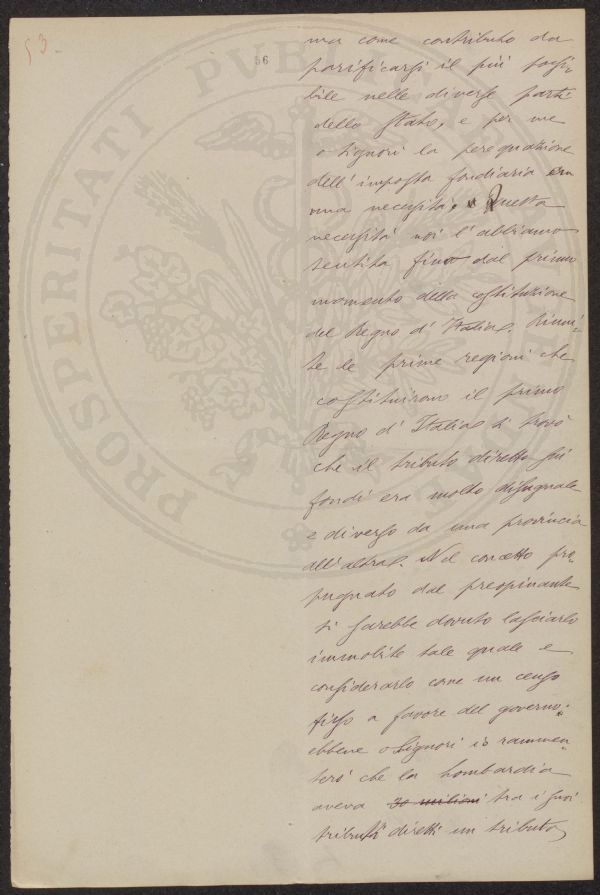 53
56
PROSPERITATI PVB
ma come contributo da
parificarsi il più possi-
bile nelle diverse parti
dello Stato, e per me
o Signori la perequazione
dell'imposta fondiaria era
una necessità. Questa
necessità noi l'abbiamo
sentita fino dal primo
momento della costituzione
del Regno d'Italia. Riuni-
te le prime regioni che
costituirono il primo
Regno d'Italia si trovò
che il tributo diretto sui
fondi era molto disuguale
e diverso da una provincia
all'altra. Nel concetto pro-
pugnato dal preopinante
si sarebbe dovuto lasciarlo
immobile tale quale e
considerarlo come un censo
fisso a favore del governo.
ebbene o Signori io rammen-
terò che la Lombardia
aveva 30 milioni tra i suoi
tributi diretti un tributo